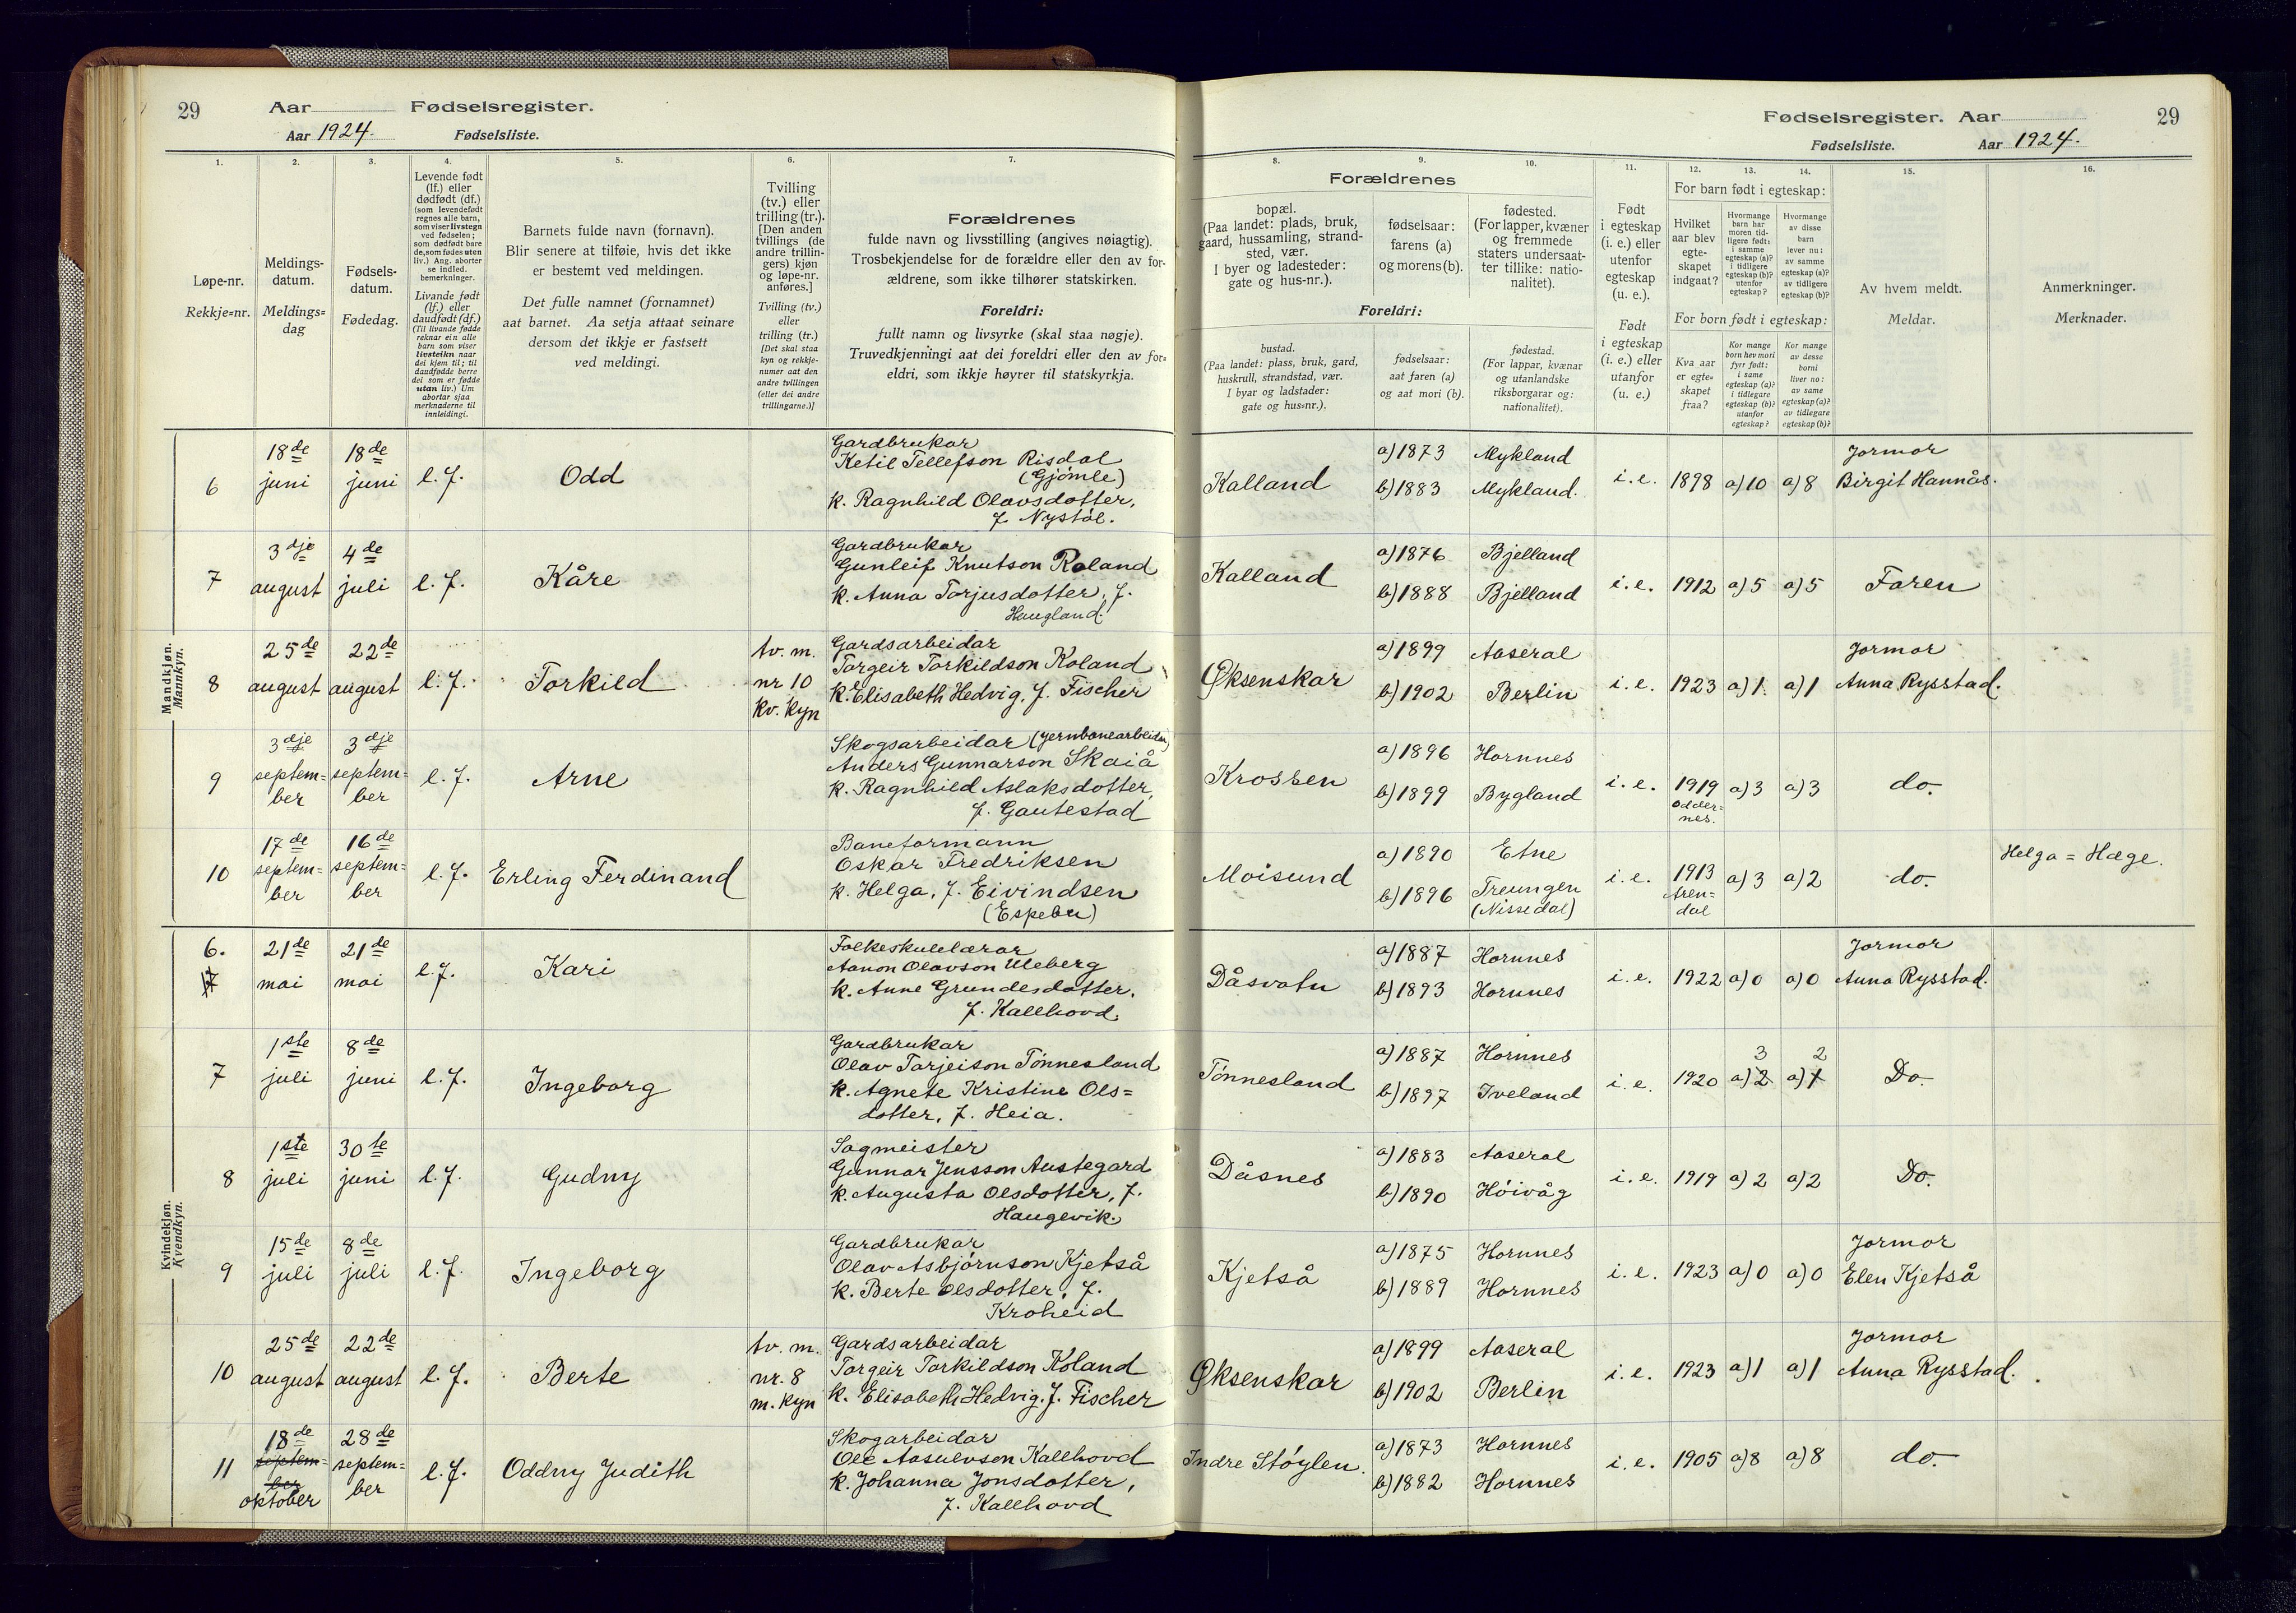 29 Aar Fødselsregister.
Aar 1924. Fødselsliste.
1. 2. 3. 4. 5. 6. 7.
Løpe-nr.
Rekkje=nr.
Meldings-
datum.
Meldings=
dag
Fødsels-
datum.
Fødedag.
Levende født
(lf.) eller
dødfødt (df.)
(som levendefødt
regnes alle barn,
som viser livstegn
ved fødselen;
som dødfødt bare
de, som fødes uten
liv.) Ang. aborter
se indled.
bemerkninger.
Livande født
(lf.) eller
daudfødt (df.)
(Til livande fødde
reknar ein alle
barn som viser
livsteikn naar
dei kjem til; til
daudfødde berre
dei som er fødde
utan liv.) Um
abortar sjaa
merknaderne til
innleidingi.
Barnets fulde navn (fornavn).
Blir senere at tilføie, hvis det ikke
er bestemt ved meldingen.
Det fulle namnet (fornamnet)
aat barnet. Aa setja attaat seinare
dersom det ikkje er fastsett
ved meldingi.
Tvilling
(tv.) eller
trilling (tr.).
[Den anden
tvillings (de
andre trillin-
gers) kjøn
og løpe-nr.
anføres.]
Tvilling (tv.)
eller
trilling (tr.)
[Det skal staa
kyn og rekkje-
numer aat den
andre tvillingen
(eller dei andre
trillingarne.)]
Forældrenes
fulde navn og livsstilling (angives nøiagtig).
Trosbekjendelse for de forældre eller den av for-
ældrene, som ikke tilhører statskirken.
Foreldri:
fullt namn og livsyrke (skal staa nøgje).
Truvedkjenningi aat dei foreldri eller den av for=
eldri, som ikkje høyrer til statskyrkja.
Mandkjøn.
Mannkyn.
6 18de juni 18de juni l.f. Odd
Gardbrukar
Ketil Tellefson Risdal
(Gjömle)
k. Ragnhild Olavsdotter,
f. Nystöl.
7 3dje august 4de juli l.f. Kåre
Gardbrukar
Gunleif Knutson Roland
k. Anna Tarjusdotter, f.
Haugland.
8 25de august 22de august l.f. Torkild
tv. m.
nr 10
kv. kyn
Gardsarbeidar
Torgeir Torkildson Koland
k. Elisabeth Hedvig, f. Fischer
9 3dje septem=ber 3dje septem=ber l.f. Arne
Skogsarbeidar (jernbanearbeidar)
Anders Gunnarson Skaiå
k. Ragnhild Aslaksdotter,
f. Gautestad
10 17de septem=ber 16de septem=ber l.f. Erling Ferdinand
Baneformann
Oskar Fredriksen
k. Helga, f. Eivindsen
(Espebu)
Kvindekjøn.
Kvendkyn.
6. 21de mai 21de mai l.f. Kari
Folkeskulelærar
Aanon Olavson Uleberg
k. Anne Grundesdotter,
f. Kallhovd.
7 1ste juli 8de juni l.f. Ingeborg
Gardbrukar
Olav Tarjeison Tönnesland
k. Agnete Kristine Ols=
dotter, f. Heia.
8 1ste juli 30te juni l.f. Gudny
Sagmeister
Gunnar Jensson Austegard
k. Augusta Olsdotter, f.
Haugevik.
9 15de juli 8de juli l.f. Ingeborg
Gardbrukar
Olav Asbjörnson Kjetså
k. Berte Olsdotter, f.
Kroheid
10 25de august 22de august l.f. Berte
tv. m.
nr. 8
m. kyn
Gardsarbeidar
Torgeir Torkildson Koland
k. Elisabeth Hedvig, f. Fischer
11 18de septem=ber oktober 28de septem=ber l.f. Oddny Judith
Skogarbeidar
Ole Aasulvson Kallhovd
k. Johanna Jonsdotter,
f. Kallhovd
Fødselsregister. Aar 29
Fødselsliste. Aar 1924.
8. 9. 10. 11. 12. 13. 14. 15. 16.
Forældrenes
bopæl.
(Paa landet: plads, bruk,
gaard, hussamling, strand-
sted, vær.
I byer og ladesteder:
gate og hus-nr.).
fødselsaar:
farens (a)
og morens (b).
fødested.
(For lapper, kvæner
og fremmede
staters undersaat-
ter tillike: natio-
nalitet).
Foreldri:
bustad.
(Paa landet: plass, bruk, gard,
huskrull, strandstad, vær.
I byar og ladstader:
gate og hus=nr.).
fødselsaar:
aat faren (a)
og aat mori (b).
fødestad.
(For lappar, kvænar
og utanlandske
riksborgarar og:
nationalitet).
Født
i egteskap
(i. e.) eller
utenfor
egteskap
(u. e.).
Født
i egteskap
(i. e.) eller
utanfor
(u. e.)
For barn født i egteskap:
Hvilket
aar blev
egte-
skapet
indgaat?
Hvormange
barn har
moren tid-
ligere født:
i samme
egteskap (a)?
i tidligere
egteskap (b)?
utenfor
egteskap?
Hvormange
av disse
barn
lever nu:
av samme
egteskap (a)?
av tidligere
egteskap (b)?
For born født i egteskap:
Kva aar
er egte=
skapet
fraa?
Kor mange
born hev mori
fyrr født:
i same
egteskap (a)?
i tidlegare
egteskap (b)?
utanfor
egteskap?
Kor mange
av desse
borni
liver no:
av same
egteskap (a)?
av tidlegare
egteskap (b)?
Av hvem meldt.
Meldar.
Anmerkninger.
Merknader.
Kalland a) 1873 Mykland b) 1883 Mykland. i. e. 1898 a) 10 a) 8 Jormor Birgit Hannås.
Kalland a) 1876 Bjelland b) 1888 Bjelland i. e. 1912 a) 5 a) 5 Faren
Øksenskar a) 1899 Aaseral b) 1902 Berlin i. e. 1923 a) 1. a) 1 Jormor Anna Rysstad.
Krossen a) 1896 Hornnes b) 1899 Bygland i. e. 1919 Odder=nes. a) 3 a) 3 do.
Moisund a) 1890 Etne b) 1896 Treungen (Nissedal) i. e. 1913 Aren=dal a) 3 a) 2 do. Helga = Hæge.
Dåsvatn a) 1887 Hornnes b) 1893 Hornnes i. e. 1922 a) 0 a) 0 Jormor Anna Rysstad.
Tönnesland a) 1887 Hornnes b) 1897 Iveland i. e. 1920 a) 2 3 a) 1 2 Do.
Dåsnes a) 1883 Aaseral b) 1890 Höivåg i. e. 1919 a) 2 a) 2 Do.
Kjetså a) 1875 Hornnes b) 1889 Hornnes i. e. 1923 a) 0 a) 0 Jormor Elen Kjetså
Øksenskar a) 1899 Aaseral b) 1902 Berlin i. e. 1923 a) 1 a) 1 Jormor Anna Rysstad.
Indre Stöylen. a) 1873 Hornnes b) 1882 Hornnes i. e. 1905 a) 8 a) 8 do.